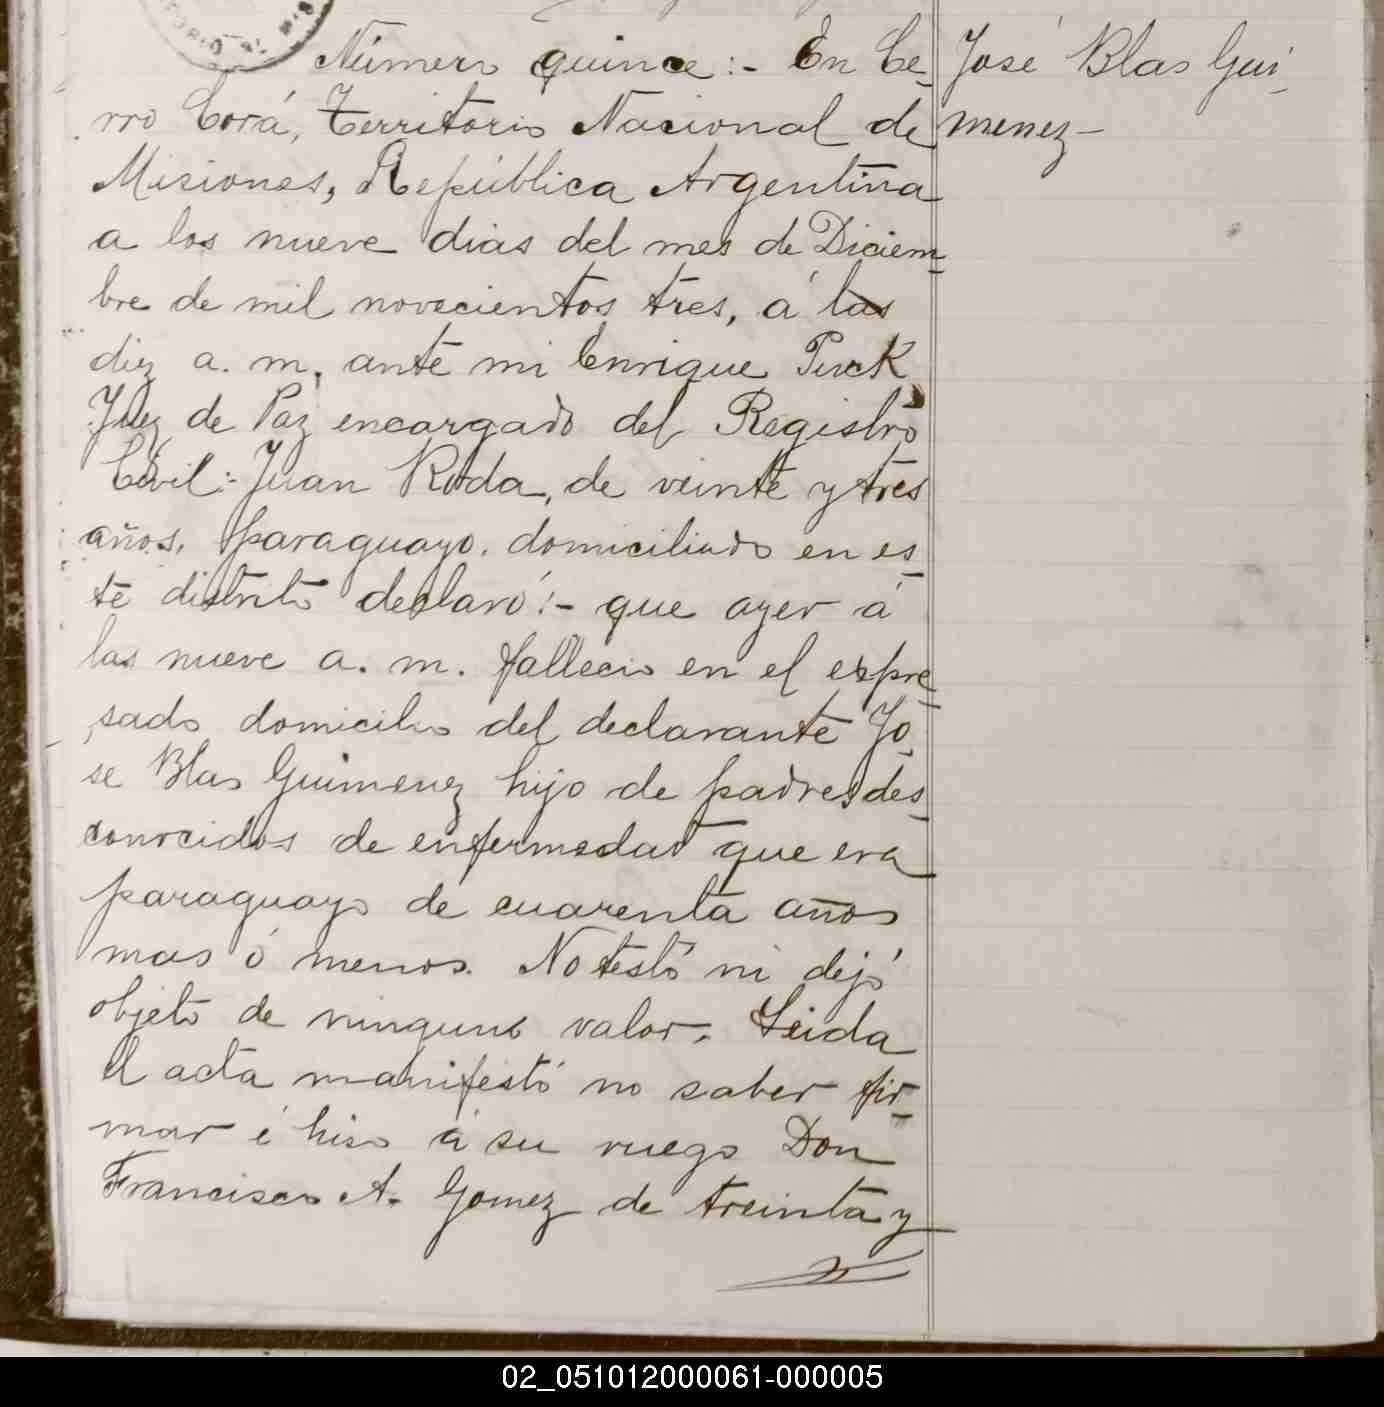 Número quince:- En Ce-
rro Corá, Territorio Nacional de
Misiones, República Argentina
a los nueve dias del mes de Diciem-
bre de mil novecientos tres, á las
diez a. m. ante mi Enrique Puck
Juez de Paz encargado del Registro
Civil: Juan Roda, de veinte y tres
años, paraguayo, domiciliado en es-
te distrito declaró:- que ayer á
las nueve a. m. fallecio en el expre-
sado domicilio del declarante Jo-
se Blas Guimenez hijo de padres des-
conocidos de enfermedad que era
paraguayo de cuarenta años
mas ó menos. No testó ni dejó
objeto de ninguno valor. Leida
el acta manifestó no saber fir-
mar é hiso á su ruego Don
Francisco A. Gomez de treinta y
José Blas Gui-
menez-
02_051012000061-000005